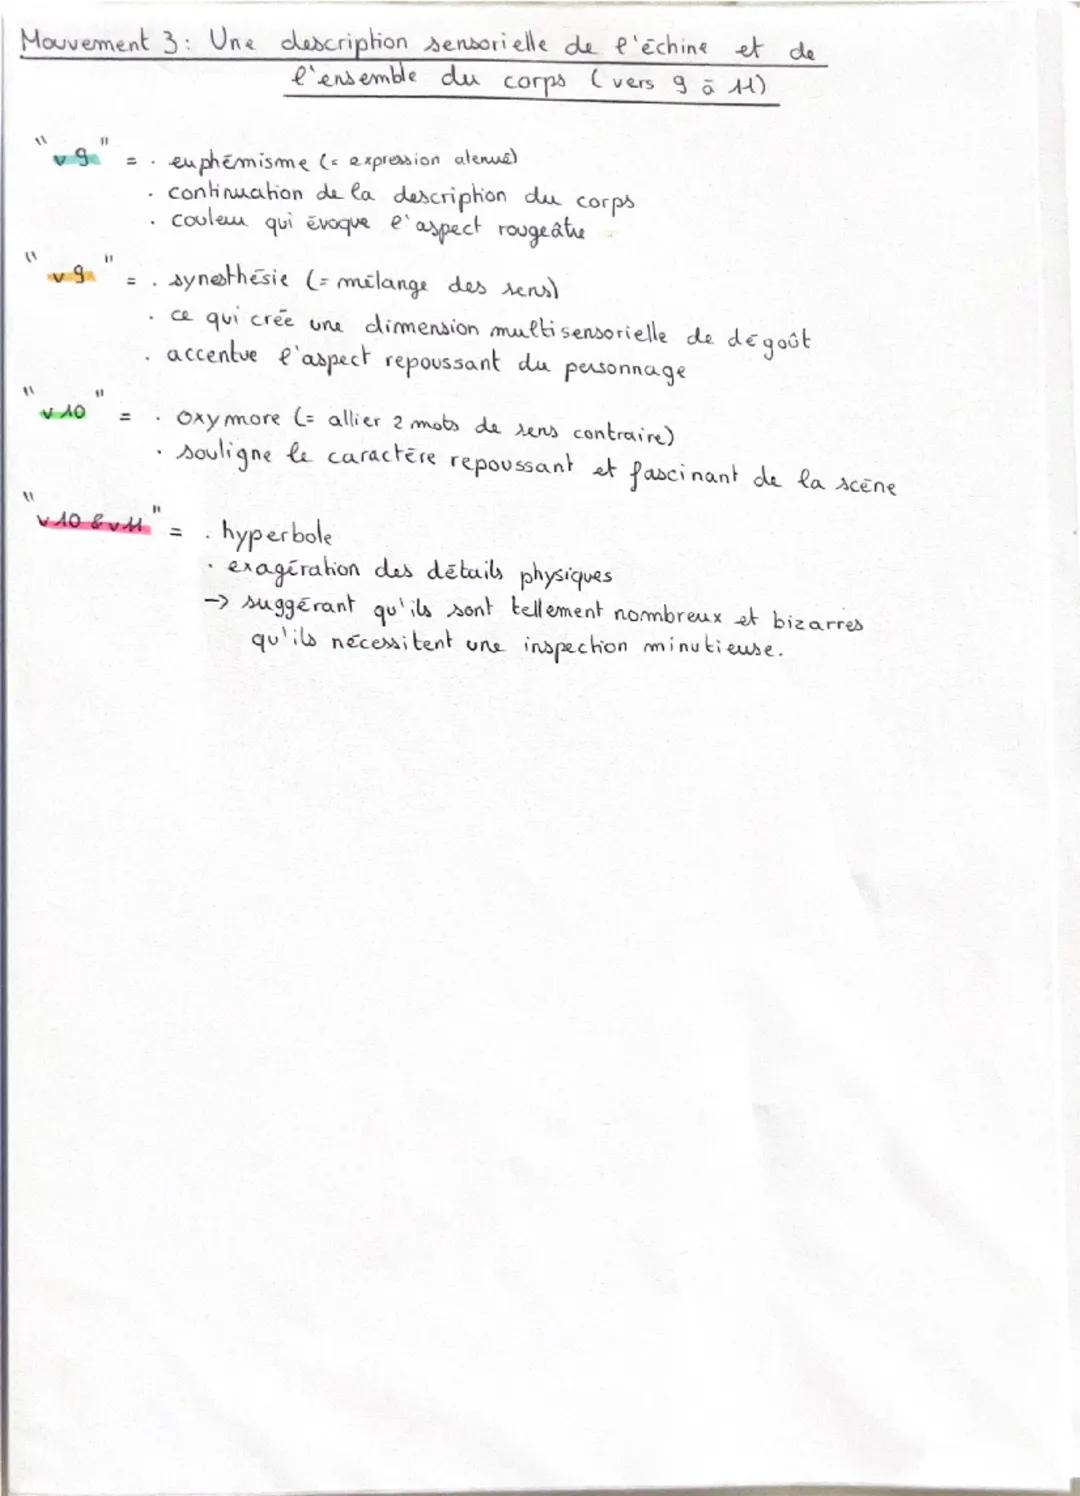 Mouvement 3 : Une description sensorielle de l'échine et de
l'ensemble du corps (vers 9 à 11)
"v9" = . euphémisme (= expression atenué)
. continuation de la description du corps
. couleur qui évoque l'aspect rougeâtre
"v9" = . synesthésie (= mélange des sens)
. ce qui crée une dimension multisensorielle de dégoût
. accentue l'aspect repoussant du personnage
"v10" = . oxymore (= allier 2 mots de sens contraire)
. souligne le caractère repoussant et fascinant de la scène
"v10 & v11" = . hyperbole
. exagération des détails physiques
-> suggérant qu'ils sont tellement nombreux et bizarres
qu'ils nécessitent une inspection minutieuse.